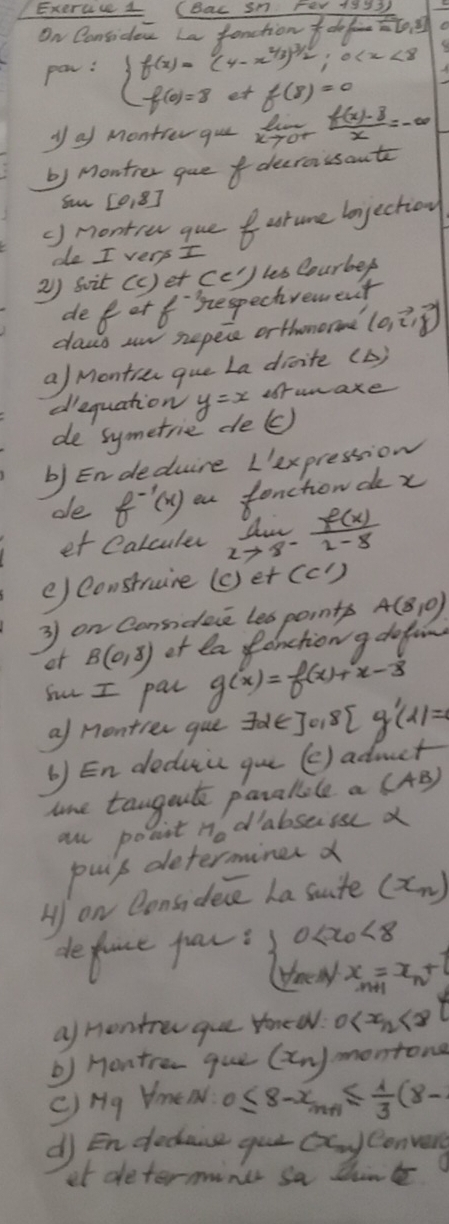 Exercice 1 (Bac SM Fev 1993)
On Considère La fonction f define [0,8]
par : { f(x) = (4-x^{2/3})^{3/2} ; 0<x<8
f(0)=8 et f(8)=0
1) a) Montrer que lim x→0+ f(x)-8/x = -∞
b) Montrer que f decroissante
sur [0,8]
c) Montrer que f est une bijection
de I vers I
2) Soit (C) et (C') les Courbes
de f et f^{-1} respectivement
dans un repère orthonormé (0,i,j)
a) Montrer que La droite (Δ)
d'equation y=x est un axe
de symetrie de (C)
b) En deduire L'expression
de f^{-1}(x) en fonction de x
et Calculer lim x→8^- f(x)/x-8
c) Construire (C) et (C')
3) on Considère les points A(8,0)
et B(0,8) et la fonction g define
sur I par g(x)=f(x)+x-8
a) Montrer que ∃α∈]0,8[ g'(α)=
b) En deduire que (C) admet
une tangente parallele a (AB)
au point M₀ d'abscisse α
puis determiner α
4) on Considère La suite (xn)
define par : { 0<x₀<8
∀n∈N x_{n+1} = x_n +
a) Montrer que ∀n∈N: 0<x_n<8
b) Montrer que (xn) monotone
c) Mq ∀n∈N: 0≤8-x_{n+1}≤1/3(8-
d) En deduire que (xn) Converg
et determiner sa limite